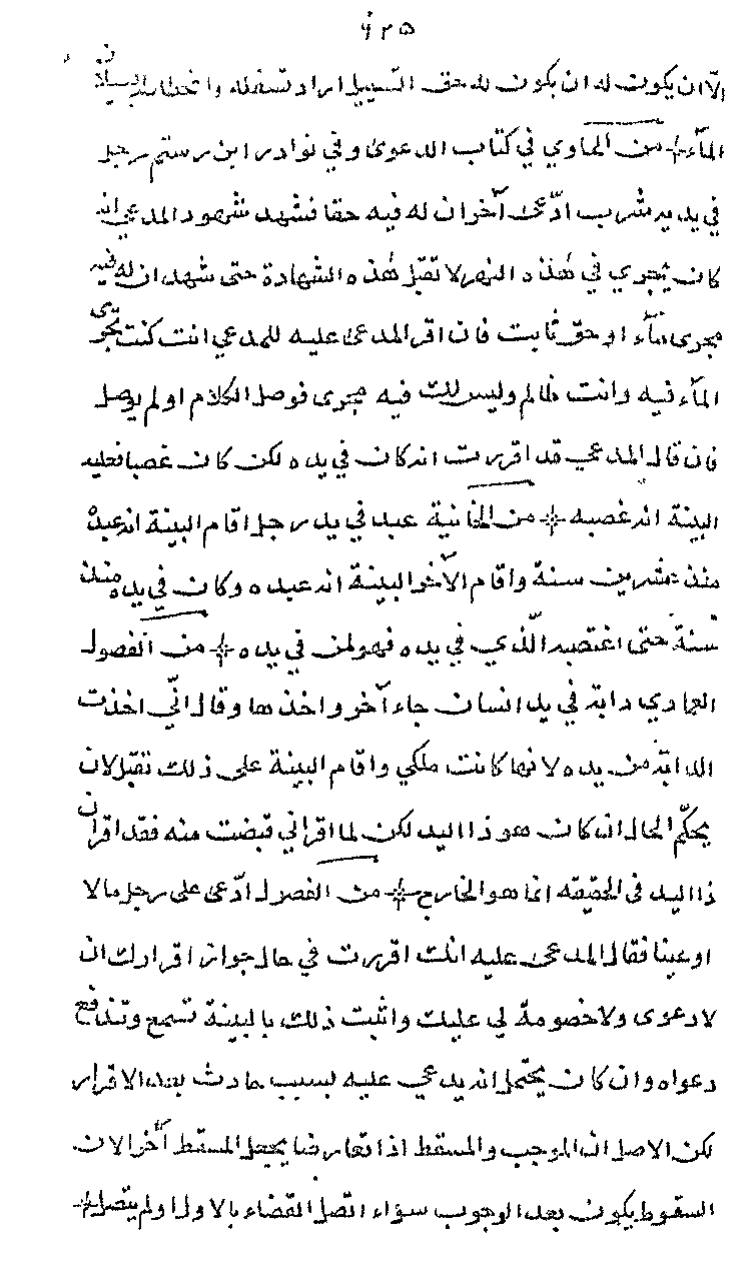 ٤٢٥
الّا ان يكون له ان يكون لله حق التسييل اراد تسفله وانحطاطه لسيلان
المآء ✢ من الحاوي في كتاب الدعوى وفي نوادر ابن رستم رجل
في يديه شرب ادّعى آخر ان له فيه حقا فشهد شهود المدعي انه
كان يجري في هذه النهر لا تقبل هذه الشهادة حتى شهد ان له فيه
مجرى مآء او حق ثابت فان اقر المدعى عليه للمدعي انت كنت تجري
المآء فيه وانت ظالم وليس لك فيه مجرى فوصل الكلام او لم يوصل
فان قال المدعي قد اقررت انه كان في يده لكن كان غصبا فعليه
البينة انه غصبه ✢ من الخانية عبد في يد رجل اقام البينة انه عبده
منذ عشرين سنة واقام الآخر البينة انه عبده وكان في يده منذ
سنة حتى اغتصبه الّذي في يده فهو لمن في يده ✢ من الفصول
العمادي دابة في يد انسان جاء آخر واخذها وقال انّي اخذت
الدابّة من يده لانها كانت ملكي واقام البينة على ذلك تقبل لان
يحكّم الحال ان كان هو ذا اليد لكن لما اقر اني قبضت منه فقد اقر ان
ذا اليد في الحقيقه انما هو الخارج ✢ من الفصول ادّعى على رجل مالا
او عينا فقال المدعى عليه انك اقررت في حال جواز اقرارك ان
لا دعوى ولا خصومة لي عليك واثبت ذلك بالبينة تسمع وتندفع
دعواه وان كان يحتمل انه يدعي عليه بسبب حادث بعد الاقرار
لكن الاصل ان الموجب والمسقط اذا تعارضا يجعل المسقط آخرا لان
السقوط يكون بعد الوجوب سوآء اتّصل القضاء بالاول او لم يتصل ✢